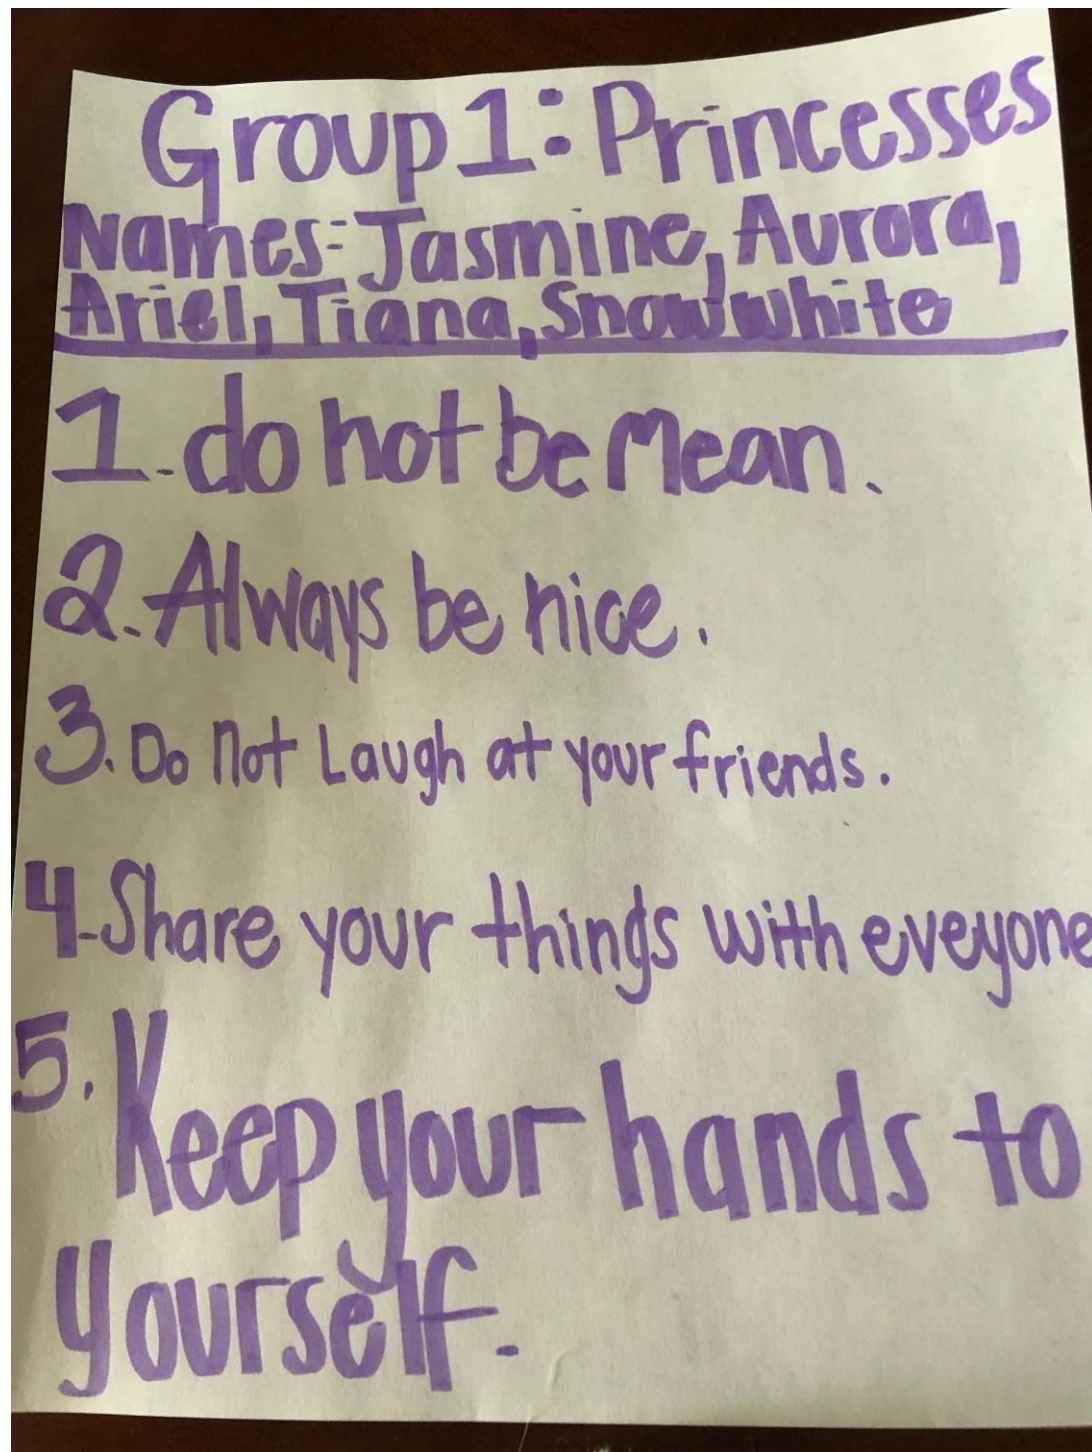 Group 1: Princesses
Names: Jasmine, Aurora,
Ariel, Tiana, Snow white
1. do not be Mean.
2. Always be nice.
3. Do Not Laugh at your friends.
4. Share your things with eveyone
5. Keep your hands to
yourself.